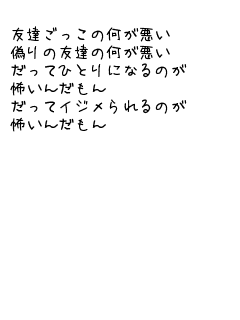 友達ごっこの何が悪い
偽りの友達の何が悪い
だってひとりになるのが
怖いんだもん
だってイジメられるのが
怖いんだもん